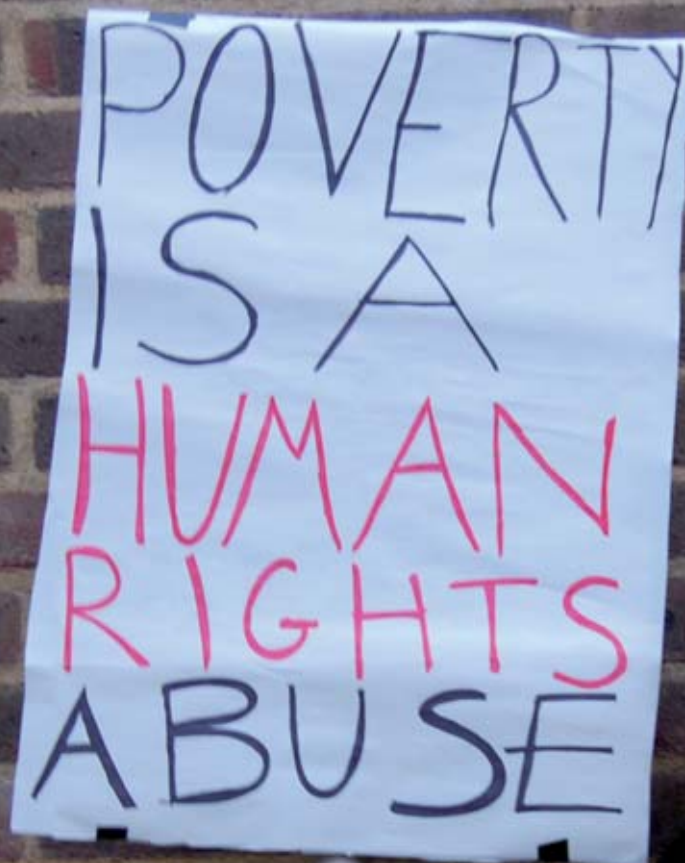 POVERTY
IS A
HUMAN
RIGHTS
ABUSE